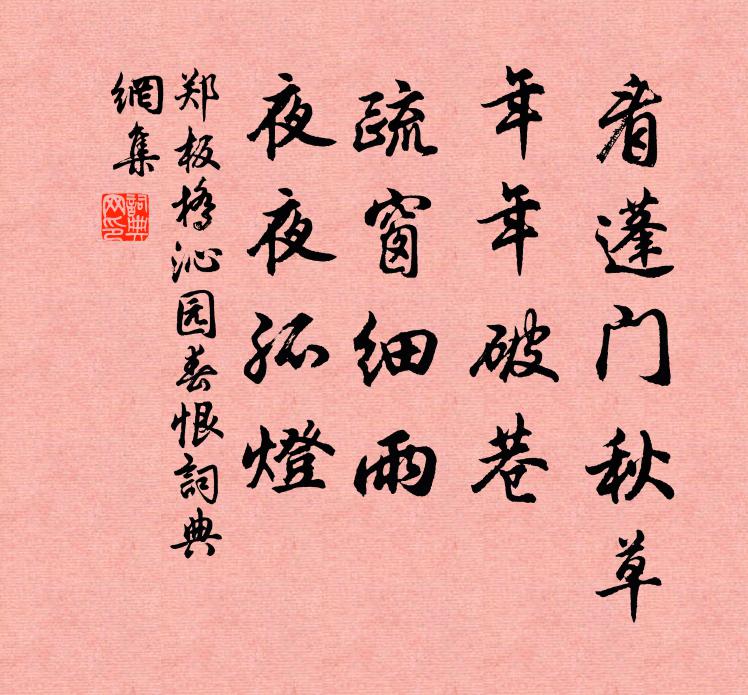 看蓬门秋草
年年破巷
疏窗细雨
夜夜孤燈
郑板橋沁园春恨詞典
網集
詞典网印